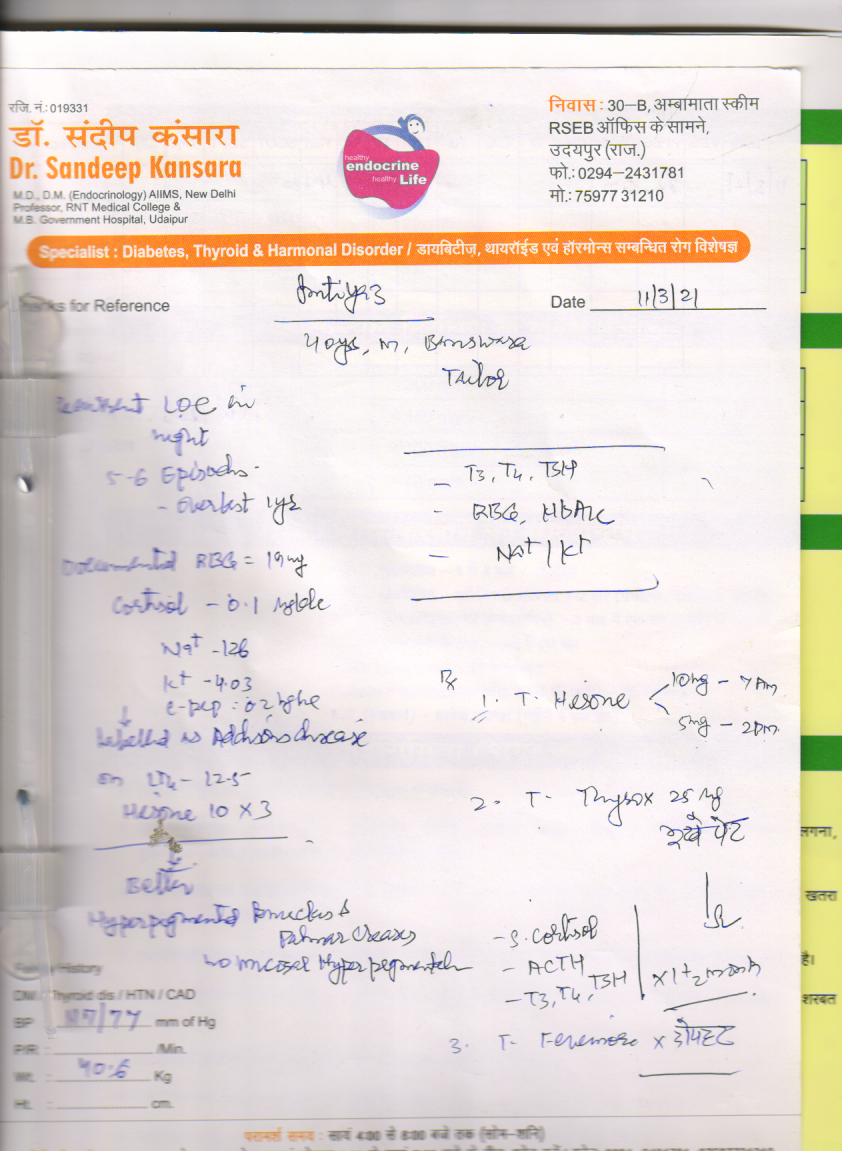 रजि. नं.: 019331
डॉ. संदीप कंसारा
Dr. Sandeep Kansara
M.D., D.M. (Endocrinology) AIIMS, New Delhi
Professor, RNT Medical College &
M.B. Government Hospital, Udaipur
healthy
endocrine
healthy Life
निवास : 30–B, अम्बामाता स्कीम
RSEB ऑफिस के सामने,
उदयपुर (राज.)
फो.: 0294–2431781
मो.: 75977 31210
Specialist : Diabetes, Thyroid & Harmonal Disorder / डायबिटीज़, थायरॉईड एवं हॉरमोन्स सम्बन्धित रोग विशेषज्ञ
for Reference
Date 11/3/21
40 yrs, M, Banswara
Tailor
Recurrent LOC in
night
5-6 Episodes -
- Over last 1 yr
Documented RBG = 19 mg
Cortisol - 0.1
Na+ - 126
K+ - 4.03
c-pep : 0.2
↓
Labelled as Addisons disease
on LT4 - 12.5
Hisone 10 X 3
↓
Better
Hyperpigmented knuckles &
Palmar creases
no mucosal Hyperpigmentation
- T3, T4, TSH
- RBG, HbA1c
- Na+ / K+
Rx
1. T. Hisone < 10mg - 7 AM
5mg - 2 PM
2. T. Thyrox 25
भूखे पेट
- S. Cortisol
- ACTH
- T3, T4, TSH
x 1+2 month
3. T.
History
DM / Thyroid dis / HTN / CAD
BP : /77 mm of Hg
P/R : /Min.
Wt. : 40.6 Kg
Ht. : cm.
परामर्श समय : सायं 4:00 से 8:00 बजे तक (सोम–शनि)
लगना,
खतरा
है।
शरबत